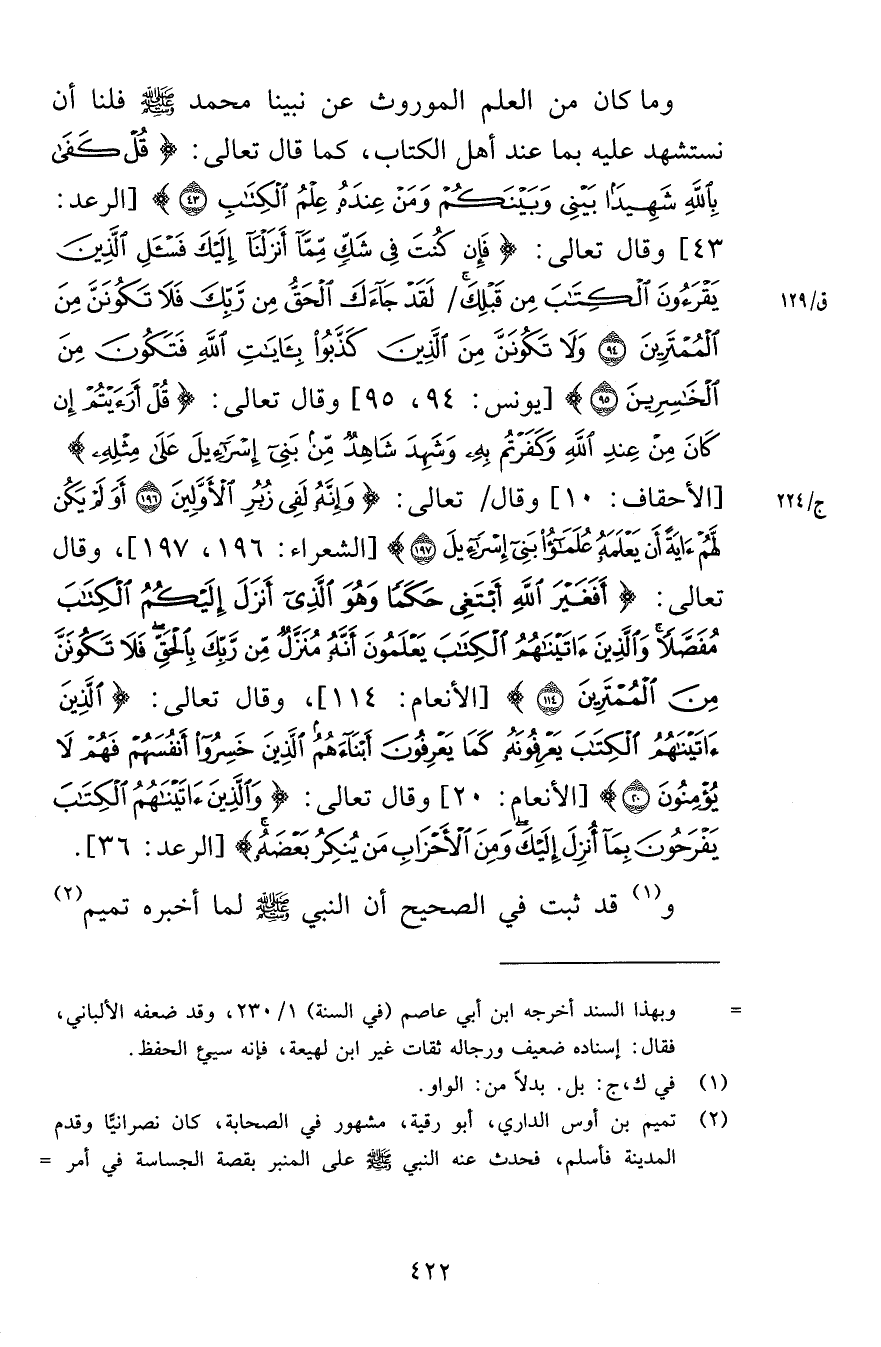 وما كان من العلم الموروث عن نبينا محمد ﷺ فلنا أن
نستشهد عليه بما عند أهل الكتاب، كما قال تعالى: ﴿ قُلْ كَفَىٰ
بِٱللَّهِ شَهِيدًۢا بَيْنِى وَبَيْنَكُمْ وَمَنْ عِندَهُۥ عِلْمُ ٱلْكِتَٰبِ ٤٣ ﴾ [الرعد:
٤٣] وقال تعالى: ﴿ فَإِن كُنتَ فِى شَكٍّ مِّمَّآ أَنزَلْنَآ إِلَيْكَ فَسْـَٔلِ ٱلَّذِينَ
يَقْرَءُونَ ٱلْكِتَٰبَ مِن قَبْلِكَ ۚ/ لَقَدْ جَآءَكَ ٱلْحَقُّ مِن رَّبِّكَ فَلَا تَكُونَنَّ مِنَ
ق/١٢٩
ٱلْمُمْتَرِينَ ٩٤ وَلَا تَكُونَنَّ مِنَ ٱلَّذِينَ كَذَّبُوا۟ بِـَٔايَٰتِ ٱللَّهِ فَتَكُونَ مِنَ
ٱلْخَٰسِرِينَ ٩٥ ﴾ [يونس: ٩٤، ٩٥] وقال تعالى: ﴿ قُلْ أَرَءَيْتُمْ إِن
كَانَ مِنْ عِندِ ٱللَّهِ وَكَفَرْتُم بِهِۦ وَشَهِدَ شَاهِدٌ مِّنۢ بَنِىٓ إِسْرَٰٓءِيلَ عَلَىٰ مِثْلِهِۦ ﴾
[الأحقاف: ١٠] وقال/ تعالى: ﴿ وَإِنَّهُۥ لَفِى زُبُرِ ٱلْأَوَّلِينَ ١٩٦ أَوَلَمْ يَكُن
ج/٢٢٤
لَّهُمْ ءَايَةً أَن يَعْلَمَهُۥ عُلَمَٰٓؤُا۟ بَنِىٓ إِسْرَٰٓءِيلَ ١٩٧ ﴾ [الشعراء: ١٩٦، ١٩٧]، وقال
تعالى: ﴿ أَفَغَيْرَ ٱللَّهِ أَبْتَغِى حَكَمًا وَهُوَ ٱلَّذِىٓ أَنزَلَ إِلَيْكُمُ ٱلْكِتَٰبَ
مُفَصَّلًا ۚ وَٱلَّذِينَ ءَاتَيْنَٰهُمُ ٱلْكِتَٰبَ يَعْلَمُونَ أَنَّهُۥ مُنَزَّلٌ مِّن رَّبِّكَ بِٱلْحَقِّ ۖ فَلَا تَكُونَنَّ
مِنَ ٱلْمُمْتَرِينَ ١١٤ ﴾ [الأنعام: ١١٤]، وقال تعالى: ﴿ ٱلَّذِينَ
ءَاتَيْنَٰهُمُ ٱلْكِتَٰبَ يَعْرِفُونَهُۥ كَمَا يَعْرِفُونَ أَبْنَآءَهُمُ ۘ ٱلَّذِينَ خَسِرُوٓا۟ أَنفُسَهُمْ فَهُمْ لَا
يُؤْمِنُونَ ٢٠ ﴾ [الأنعام: ٢٠] وقال تعالى: ﴿ وَٱلَّذِينَ ءَاتَيْنَٰهُمُ ٱلْكِتَٰبَ
يَفْرَحُونَ بِمَآ أُنزِلَ إِلَيْكَ ۖ وَمِنَ ٱلْأَحْزَابِ مَن يُنكِرُ بَعْضَهُۥ ۚ ﴾ [الرعد: ٣٦].
و(١) قد ثبت في الصحيح أن النبي ﷺ لما أخبره تميم(٢)
= وبهذا السند أخرجه ابن أبي عاصم (في السنة) ١/ ٢٣٠، وقد ضعفه الألباني،
فقال: إسناده ضعيف ورجاله ثقات غير ابن لهيعة، فإنه سيئ الحفظ.
(١) في ك،ج: بل. بدلاً من: الواو.
(٢) تميم بن أوس الداري، أبو رقية، مشهور في الصحابة، كان نصرانيًّا وقدم
المدينة فأسلم، فحدث عنه النبي ﷺ على المنبر بقصة الجساسة في أمر =
٤٢٢